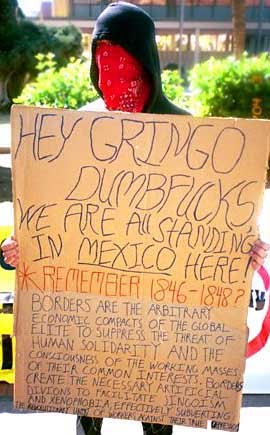 HEY GRINGO
DUMBFUCKS
WE ARE All STANDING
IN MEXICO HERE.
*REMEMBER 1846-1848?
BORDERS ARE THE ARBITRARY
ECONOMIC COMPACTS OF THE GLOBAL
ELITE TO SUPPRESS THE THREAT OF
HUMAN SOLIDARITY AND THE
CONSCIOUSNESS OF THE WORKING MASSES
OF THEIR COMMON INTERESTS. BORDERS
CREATE THE NECESSARY ARTIFICIAL
DIVISIONS TO FACILITATE JINGOISM
AND XENOPHOBIA, EFFECTIVELY SUBVERTING
THE REVOLUTIONARY UNITY OF WORKERS AGAINST THEIR TRUE OPPRESSOR